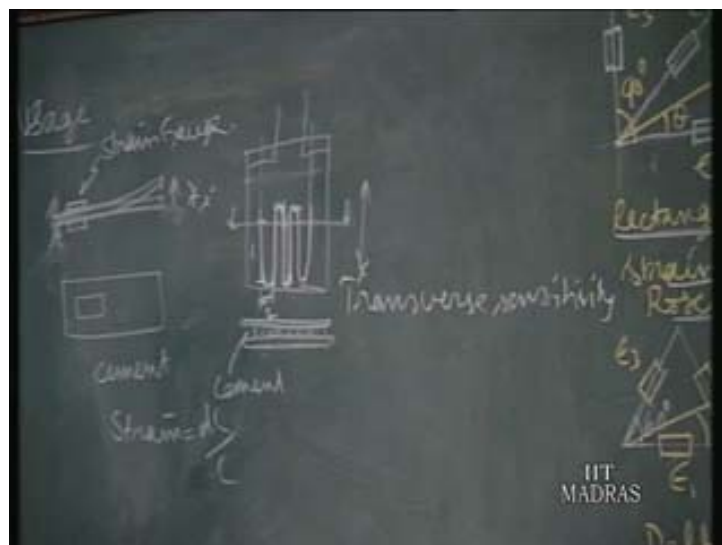 Base
Strain Gauge
Transverse sensitivity
cement
Cement
Strain = dl/l
90°
θ
Rectang
Strain
Rose
ε3
60°
ε1
IIT
MADRAS